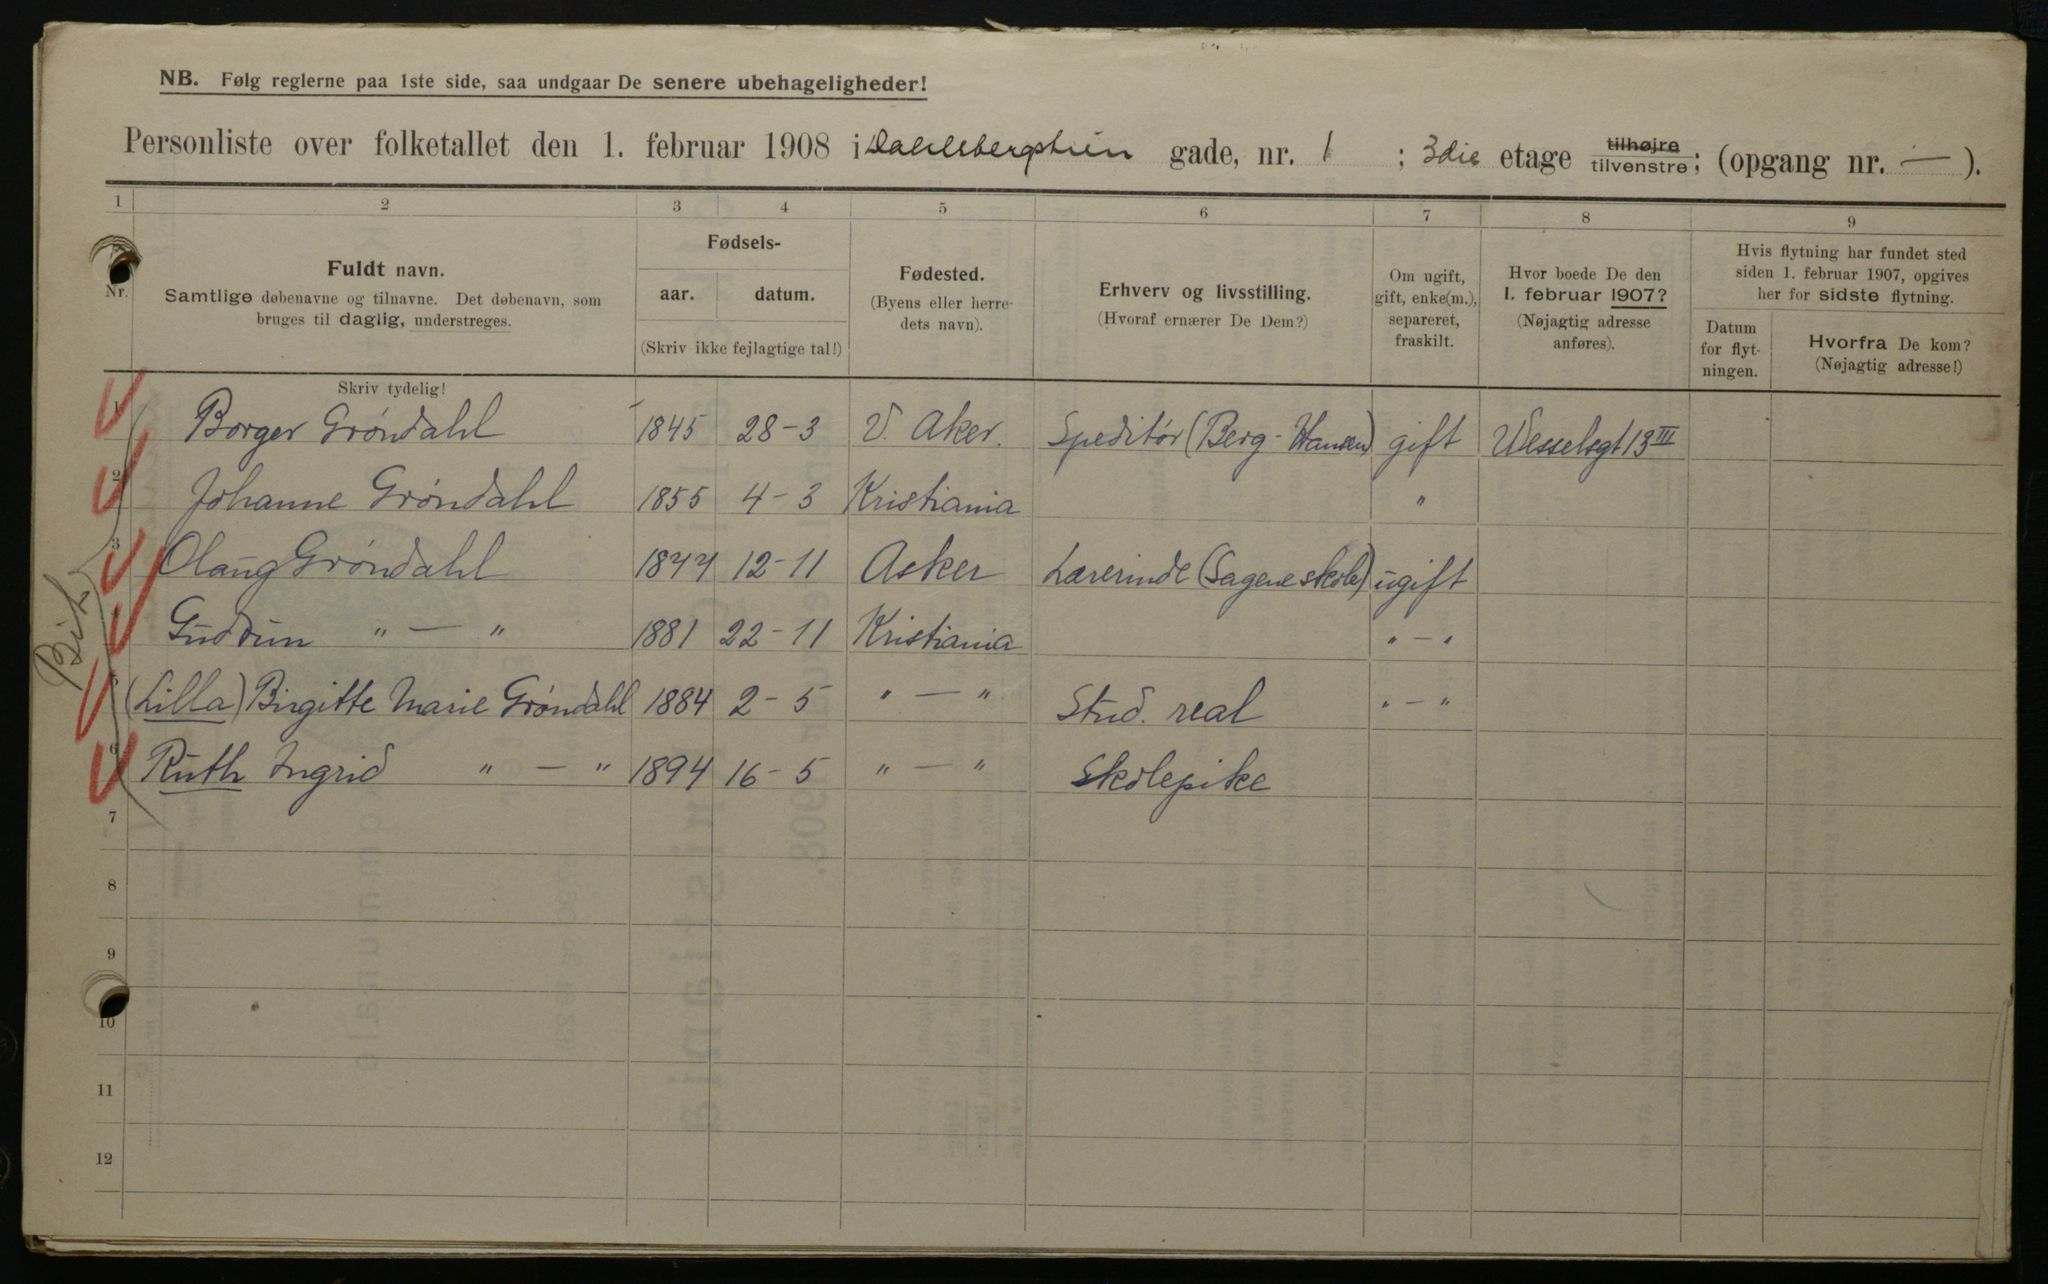 NB. Følg reglerne paa 1ste side, saa undgaar De senere ubehageligheder!
Personliste over folketallet den 1. februar 1908 i Dahlsbergstien gade, nr. 1 ; 3die etage tilhøjre tilvenstre; (opgang nr. — ).
1 2 3 4 5 6 7 8 9
Nr.
Fuldt navn.
Samtlige døbenavne og tilnavne. Det døbenavn, som
bruges til daglig, understreges.
Skriv tydelig!
Fødsels-
aar. datum.
(Skriv ikke fejlagtige tal!)
Fødested.
(Byens eller herre-
dets navn).
Erhverv og livsstilling.
(Hvoraf ernærer De Dem?)
Om ugift,
gift, enke(m.),
separeret,
fraskilt.
Hvor boede De den
1. februar 1907?
(Nøjagtig adresse
anføres).
Hvis flytning har fundet sted
siden 1. februar 1907, opgives
her for sidste flytning.
Datum
for flyt-
ningen.
Hvorfra De kom?
(Nøjagtig adresse!)
1 Borger Grøndahl 1845 28-3 V. Aker. Speditør (Berg-Hansen) gift Wesselsgt 13 III
2 Johanne Grøndahl 1855 4-3 Kristiania "
3 Olaug Grøndahl 1877 12-11 Asker Lærerinde (Sagene skole) ugift
4 Gudrun " — " 1881 22-11 Kristiania " — "
5 (Lilla) Birgitte Marie Grøndahl 1884 2-5 " — " Stud. real " — "
6 Ruth Ingrid " — " 1894 16-5 " — " Skolepike
7
8
9
10
11
12